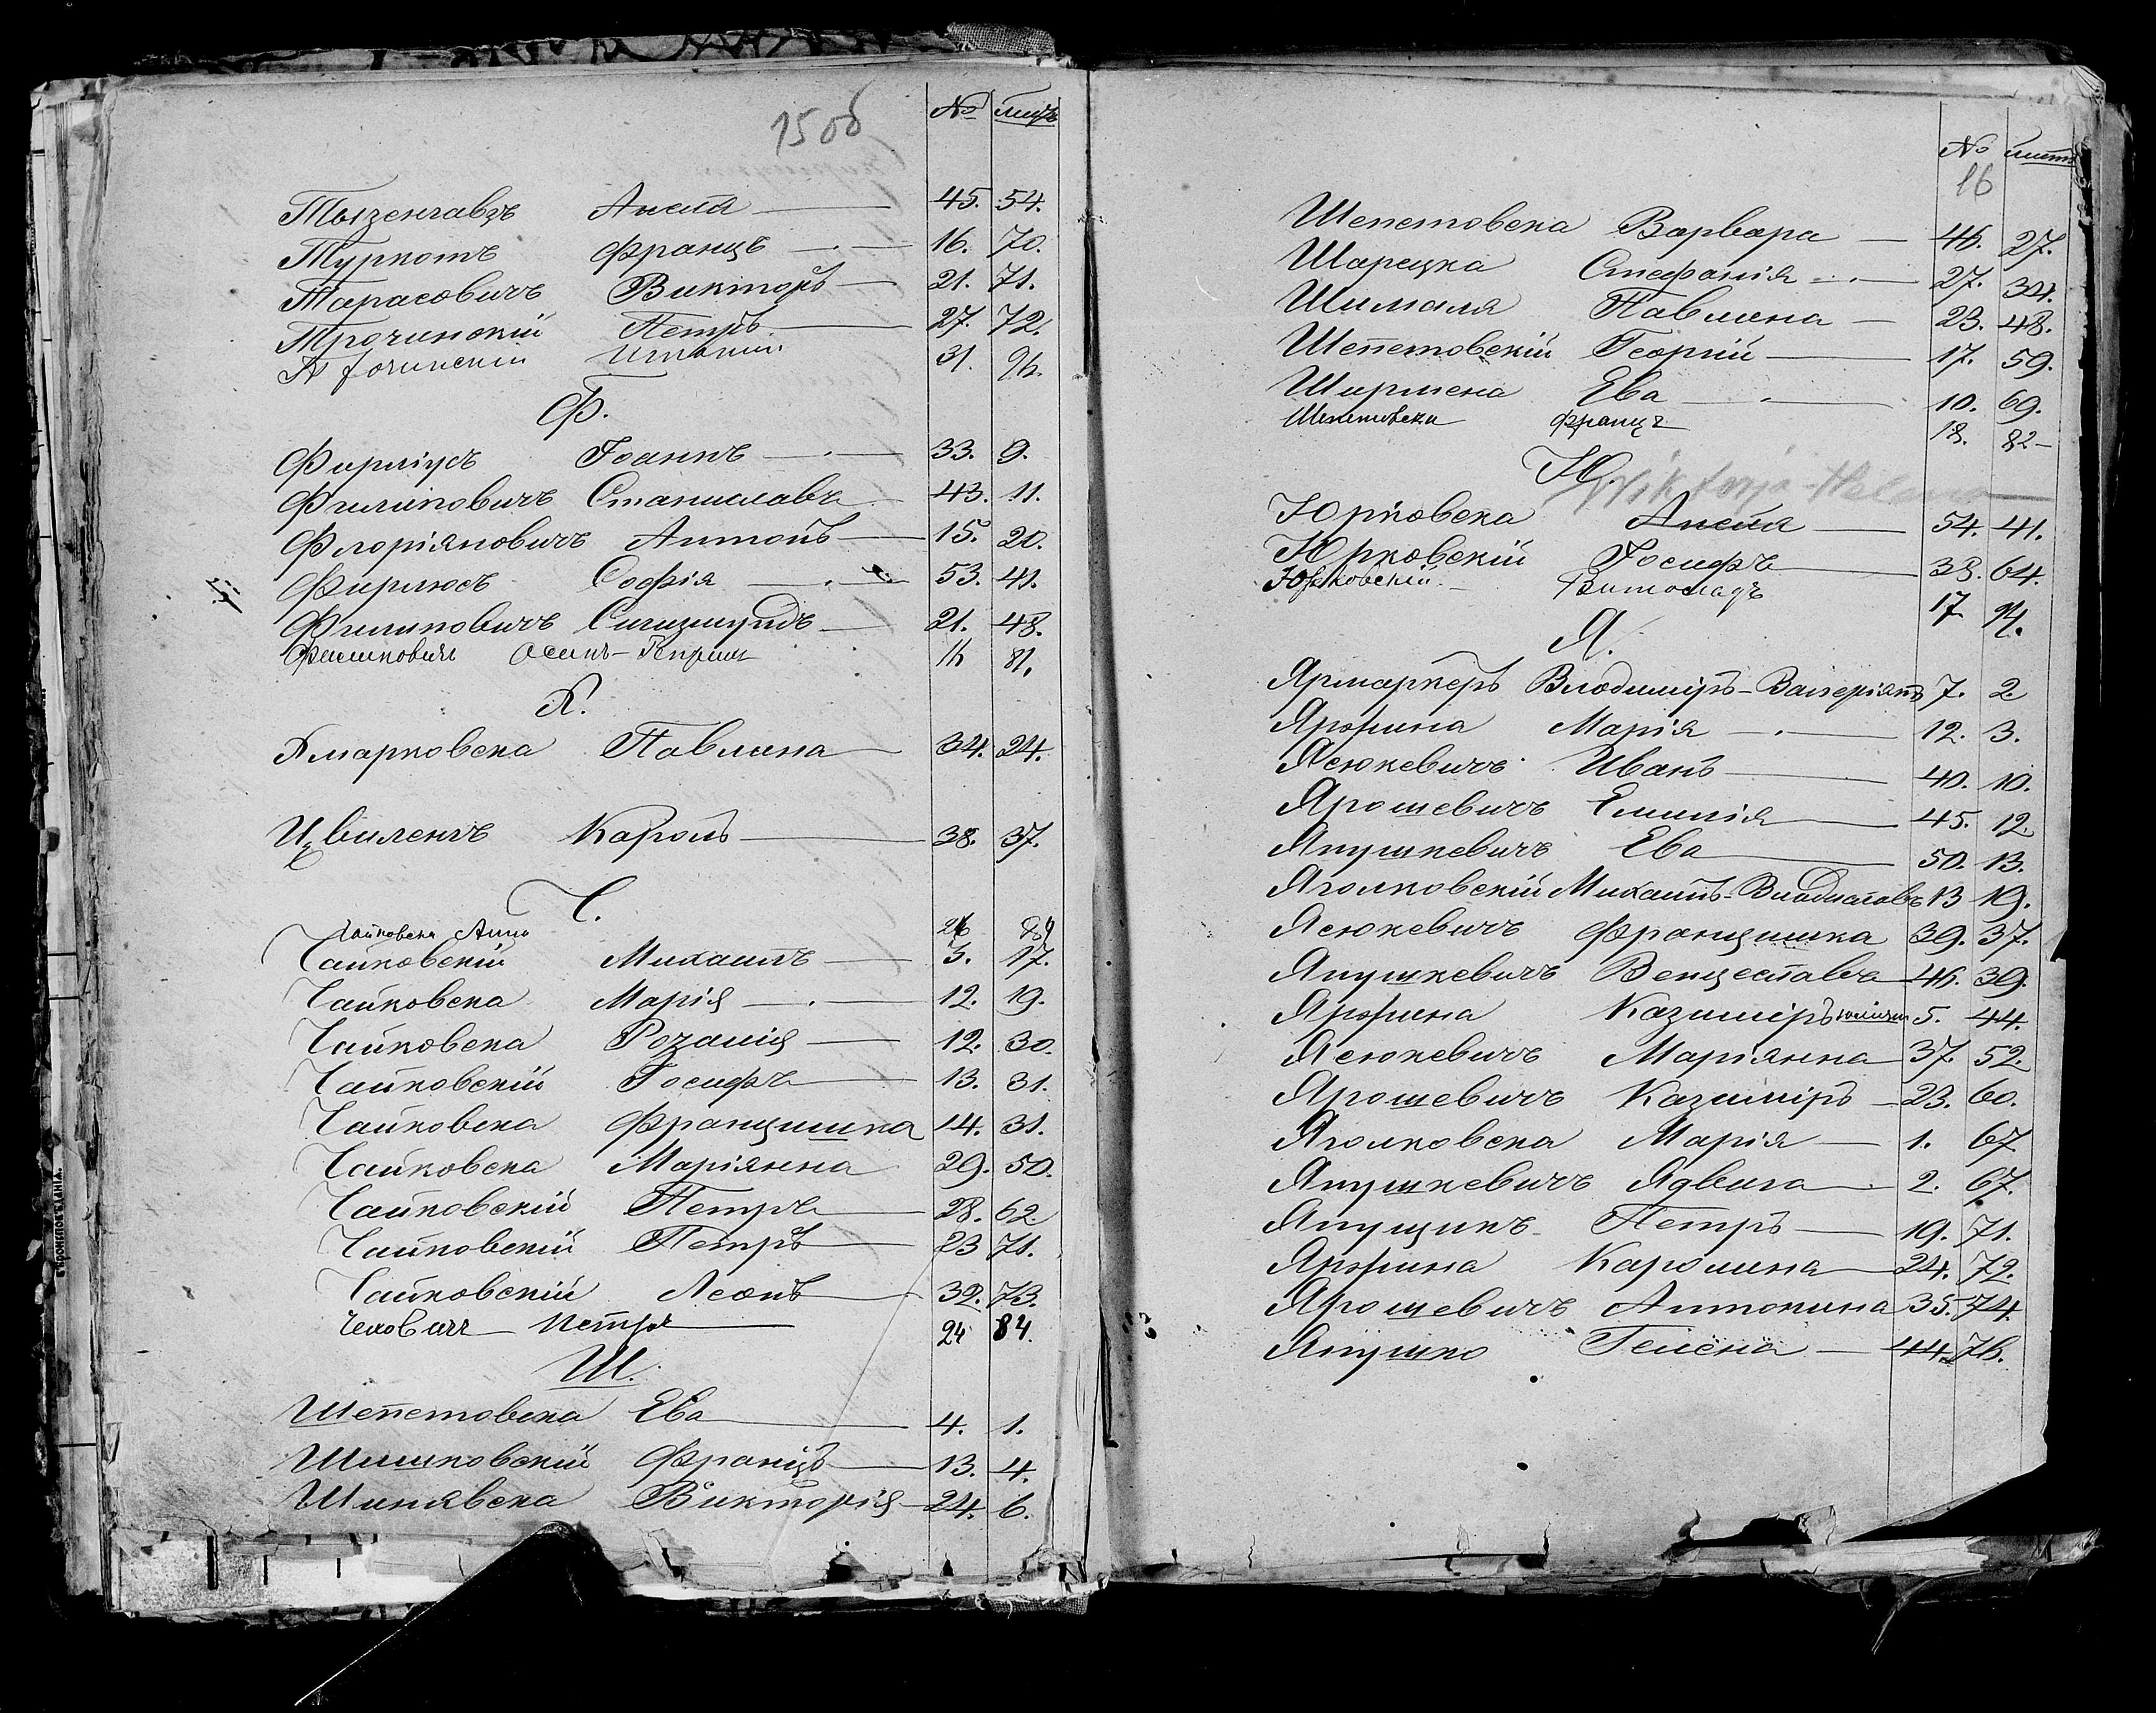 15 об
№ листъ
Тызенгавзъ Анеля 45. 54.
Туркотъ Францъ 16. 70.
Тарасовичъ Викторъ 21. 71.
Трочинскій Петръ 27. 72.
Трочинскій 31. 96.
Ф.
Фирліусъ Іоаннъ 33. 9.
Филиповичъ Станиславъ 43. 11.
Флоріяновичъ Антонъ 15. 20.
Фирлюсъ Софія 53. 41.
Филиповичъ Сигизмундъ 21. 48.
Осипъ-Генрихъ 81.
Х.
Хмарковска Павлина 34. 24.
Цвиленгъ Кароль 38. 37.
Ч.
Чайковска Анна 26 89
Чайковскій Михаилъ 3. 17.
Чайковска Марія 12. 19.
Чайковска Розалія 12. 30.
Чайковскій Іосифъ 13. 31.
Чайковска Францишка 14. 31.
Чайковска Маріянна 29. 50.
Чайковскій Петръ 28. 62.
Чайковскій Петръ 23 71.
Чайковскій Леонъ 32. 73.
Чеховичъ Петръ 24 84.
Ш.
Шепетовска Ева 4. 1.
Шишковскій Францъ 13. 4.
Шинявска Викторія 24. 6.
№ листъ
16
Шепетовска Варвара 46. 27.
Шарецка Стефанія 27. 34.
Шимля Павлина 23. 48.
Шепетовскій Георгій 17. 59.
Ширмена Ева 10. 69.
Шепетовски Францъ 18. 82
Ю.
Wiktorja-Helena
Юрковска Анеля 54. 41.
Юрковскій Іосифъ 38. 64.
Юрковскій Витольдъ 17
Я.
Ярмаркеръ Владиміръ-Валеріянъ 7. 2.
Яржина Марія 12. 3.
Ясюкевичъ Иванъ 40. 10.
Ярошевичъ Емилія 45. 12.
Янушкевичъ Ева 50. 13.
Яголковскій Михаилъ-Владиславъ 13 19.
Ясюкевичъ Францишка 39. 37.
Янушкевичъ Венцеславъ 46. 39.
Яржина Казиміръ 5. 44.
Ясюкевичъ Маріянна 37. 52.
Ярошевичъ Казиміръ 23. 60.
Яголковска Марія 1. 67
Янушкевичъ Ядвига 2. 67.
Янущикъ Петръ 19. 71.
Яржина Каролина 24. 72.
Ярошевичъ Антонина 35. 74.
Янушко Гелена 44. 76.